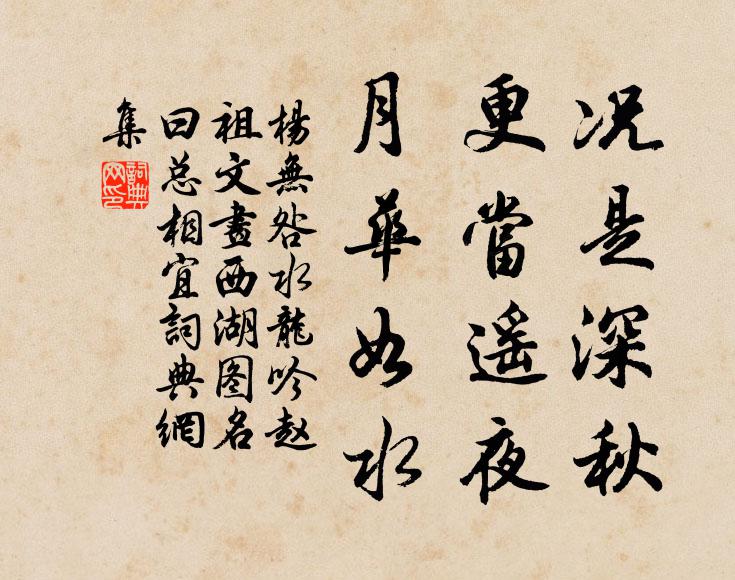 况是深秋
更當遥夜
月華如水
楊無咎水龍吟赵
祖文畫西湖图名
曰总相宜詞典網
集
詞典網印